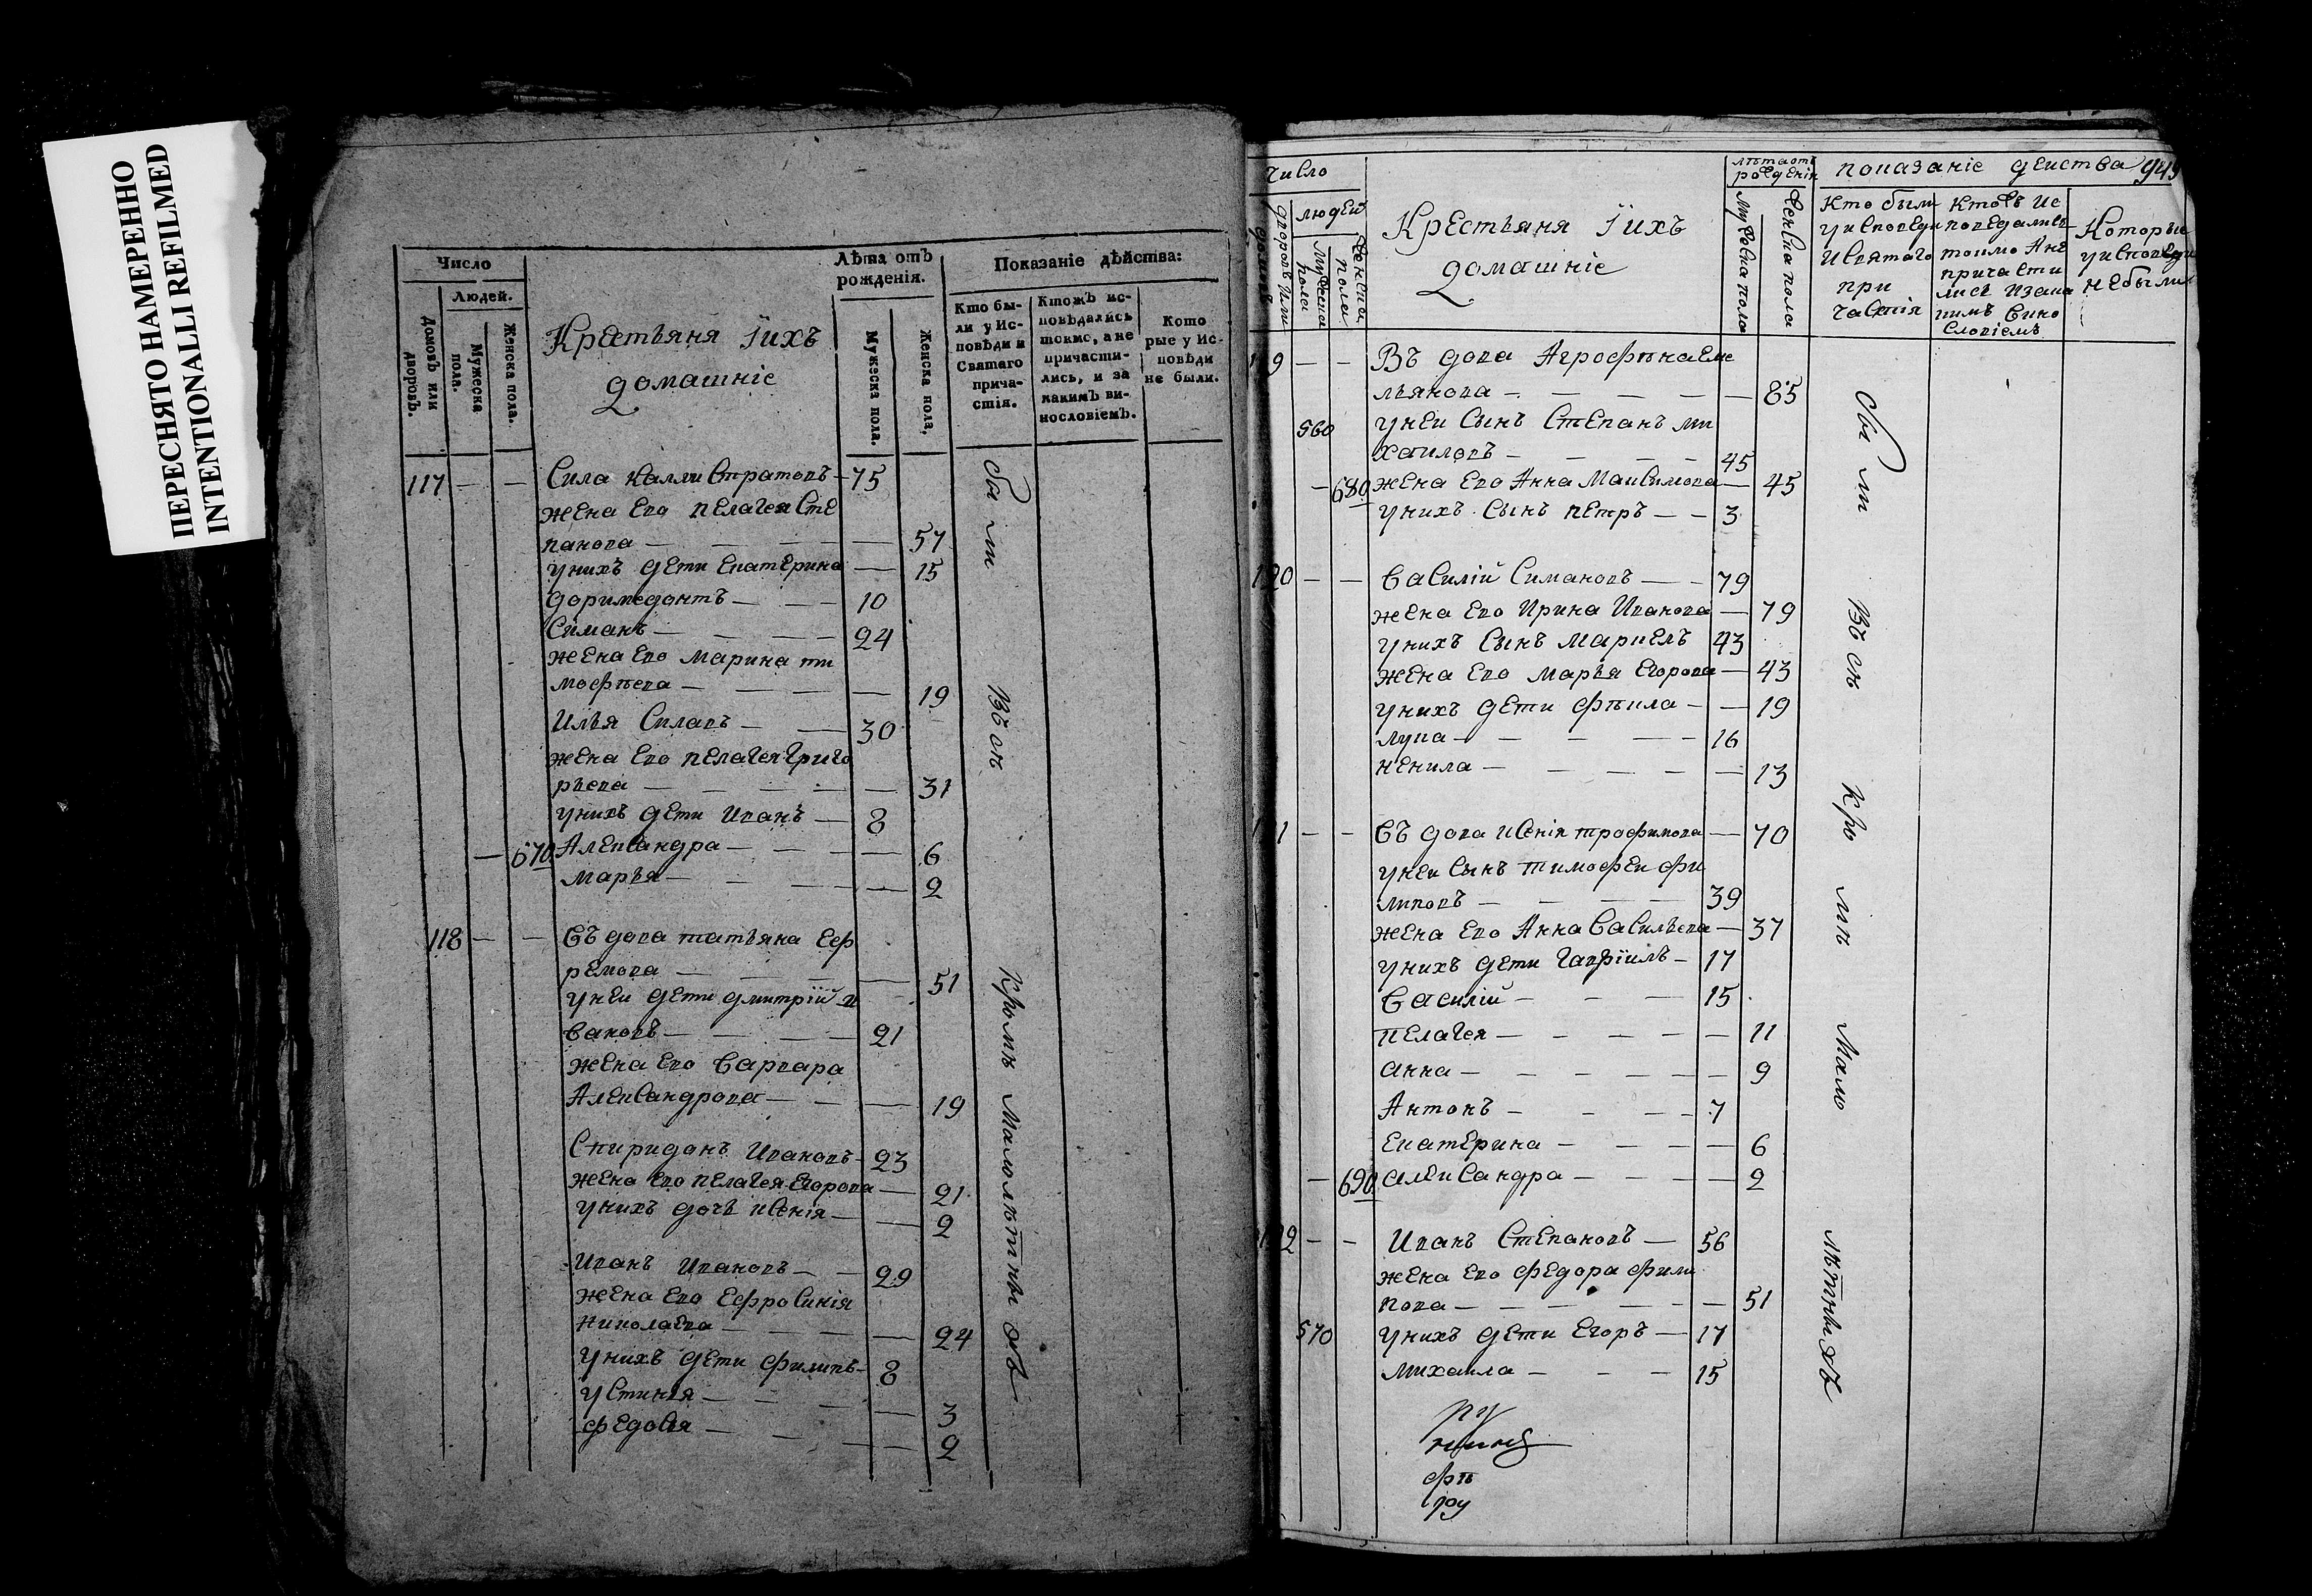 ПЕРЕСНЯТО НАМЕРЕННО
INTENTIONALLI REFILMED
Число
Людей.
Домовъ или дворовъ.
Мужеска пола.
Женска пола.
Крестьяня їихъ
домашніе
Лѣта отъ рожденія.
Мужеска пола.
Женска пола,
Показаніе дѣйства:
Кто бы-
ли у Ис-
повѣди и
Святаго
прича-
стія.
Ктожъ ис-
повѣдались
токмо, а не
причасти-
лись, и за
какимъ ви-
нословіемъ.
Кото
рые у Ис-
повѣди
не были.
117 — — Сила Каллистратовъ — 75
жена его пелагея Сте
панова — — — — 57
унихъ дети екатерина — 15
доримедонтъ — — — 10
Симанъ — — — — 24
жена его марина ти
мофѣева — — — — 19
Илья Силавъ — — 30
жена его пелагея Григо
рьева — — — — 31
унихъ дети иванъ — 8
— 670 Александра — — — 6
марья — — — — 2
118 — — Въдова татьяна еф
ремова — — — 51
уней дети дмитрїй и
вановъ — — — 21
жена его варвара
Александрова — — — 19
Спиридонъ Ивановъ — 23
жена его пелагея егорова — 21
унихъ дочь ксенія — — 2
Иванъ Ивановъ — — 29
жена его ефросинія
николаева — — — — 24
унихъ дети филипъ — 8
устинья — — — — 3
федосья — — — — 2
Бы ли Въ сѣ Кромѣ Малолѣтныхъ
число
людей
дворовъ или домовъ
мужеска полѣ
женска пола
Крестьяня їихъ
домашніе
лѣта отъ
рожденія
мужеска пола
женска пола
показаніе действа 949
Кто были
уисповеди
исвятого
при
частія
Ктожъ ис
поведались
токмо Ане
причасти
лись иззака
кимъ вино
словіемъ
Которые
уисповеди
небыли
119 — — Въ дова Агрофѣна еме
льянова — — — — — 85
560 уней Сынъ Степанъ ми
хаиловъ — — — — 45
— 680 жена его Анна Максимова — 45
унихъ Сынъ петръ — — 3
120 — — Василій Симановъ — — 79
жена его Ирина Иванова — 79
унихъ Сынъ маркелъ 43
жена его марья егорова — 43
унихъ дети фѣкла — — 19
лука — — — — — 16
ненила — — — — — 13
121 — — Въ дова ксенія трофимова — 70
уней Сынъ тимофей фи
липовъ — — — — 39
жена его Анна Васильева — 37
унихъ дети гаврїилъ — 17
Василій — — — 15
пелагея — — — — — 11
анна — — — — — — 9
Антонъ — — — — 7
екатерина — — — — 6
— 690 александра — — — — 2
122 — — Иванъ Степановъ — 56
жена его федора фили
пова — — — — — — 51
570 унихъ дети егоръ — 17
михаила — — — 15
Бы ли Въ сѣ Кро мѣ Мало лѣтныхъ
ру
фѣ